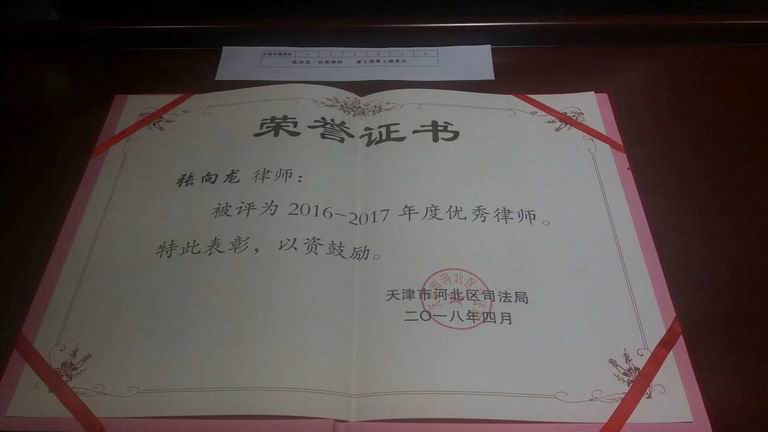 荣誉证书
张向龙 律师：
被评为 2016-2017 年度优秀律师。
特此表彰，以资鼓励。
天津市河北区司法局
二〇一八年四月